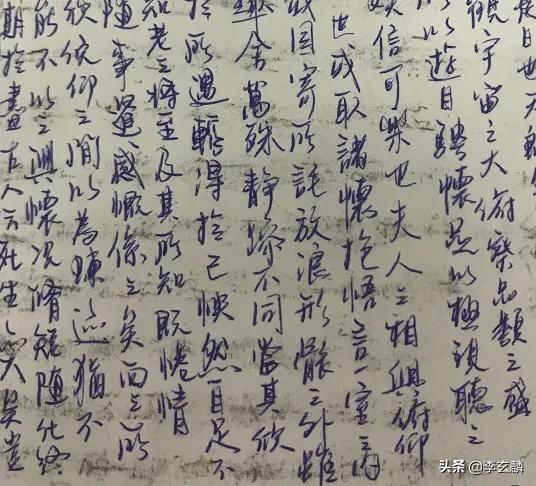 日也天朗
觀宇宙之大俯察品類之盛
以遊目騁懷足以極視聽之
娛信可樂也夫人之相與俯仰
世或取諸懷抱悟言一室之內
或因寄所託放浪形骸之外雖
趣舍萬殊靜躁不同當其欣
於所遇輒得於己快然自足不
知老之將至及其所知既惓情
隨事遷感慨係之矣向之所
欣俛仰之間以為陳迹猶不
能不以之興懷況脩短隨化終
期於盡古人云死生亦大矣豈
头条 @李玄麟